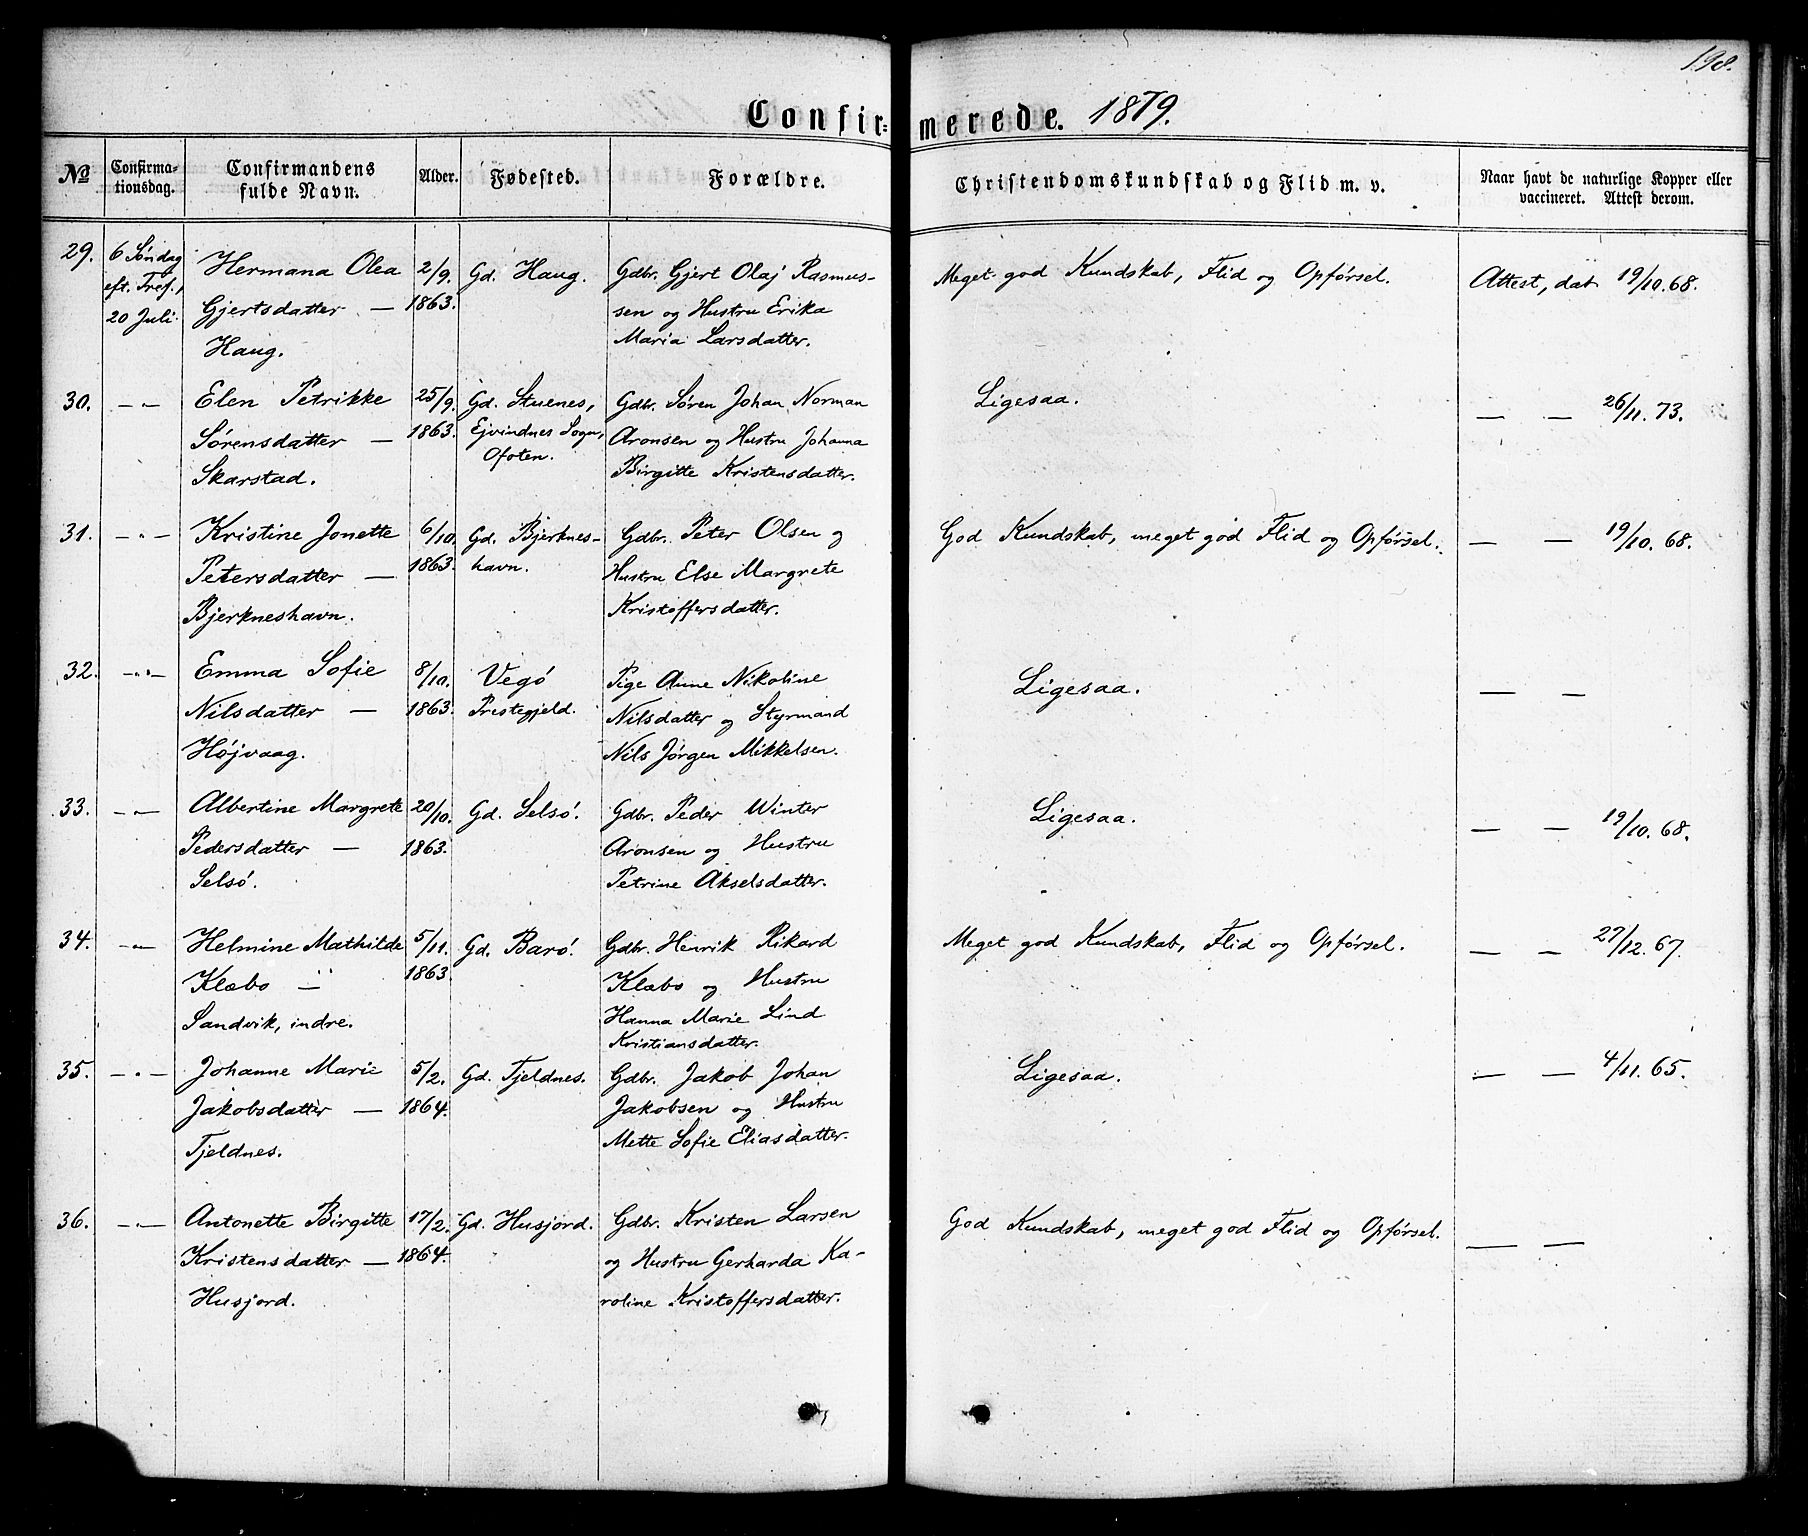 198.
Confir= merede. 1879.
No Confirma-tionsdag. Confirmandens fulde Navn. Alder. Fødested. Forældre. Christendomskundskab og Flid m. v. Naar havt de naturlige Kopper eller vaccineret. Attest derom.
29. 6 Søndag Hermana Olea 2/9. Gd. Haug. Gdbr. Gjert Olaj Rasmus- Meget god Kundskab, Flid og Opførsel. Attest, dat 19/10. 68.
eft. Tref., Gjertsdatter — 1863. sen og Hustru Erika
20 Juli. Haug. Maria Larsdatter.
30. —„— Elen Petrikke 25/9. Gd. Stuenes, Gdbr. Søren Johan Norman Ligesaa. — — 26/11. 73.
Sørensdatter — 1863. Ejvindnes Sogn, Aronsen og Hustru Johanna
Skarstad. Ofoten. Birgitte Kristensdatter.
31. —„— Kristine Jonette 6/10. Gd. Bjerknes- Gdbr. Peter Olsen og God Kundskab, meget god Flid og Opførsel. — — 19/10. 68.
Petersdatter — 1863. havn. Hustru Else Margrete
Bjerkneshavn. Kristoffersdatter.
32. —„— Emma Sofie 8/10. Vegø Pige Anne Nikoline Ligesaa. — —
Nilsdatter — 1863. Prestegjeld. Nilsdatter og Styrmand
Højvaag. Nils Jørgen Mikkelsen.
33. —„— Albertine Margrete 20/10. Gd. Selsø. Gdbr. Peder Winter Ligesaa. — — 19/10. 68.
Pedersdatter — 1863. Aronsen og Hustru
Selsø. Petrine Akselsdatter.
34. —„— Helmine Mathilde 5/11. Gd. Barø. Gdbr. Henrik Rikard Meget god Kundskab, Flid og Opførsel. — — 27/12. 67.
Klæbo — 1863. Klæbo og Hustru
Sandvik, indre. Hanna Marie Lind
Kristiansdatter.
35. —„— Johanne Marie 5/2. Gd. Tjeldnes. Gdbr. Jakob Johan Ligesaa. — — 4/11. 65.
Jakobsdatter — 1864. Jakobsen og Hustru
Tjeldnes. Mette Sofie Eliasdatter.
36. —„— Antonette Birgitte 17/2. Gd. Husjord. Gdbr. Kristen Larsen God Kundskab, meget god Flid og Opførsel. — —
Kristensdatter — 1864. og Hustru Gerharda Ka-
Husjord. roline Kristoffersdatter.